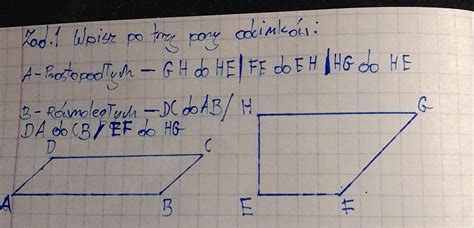 Zad.1 Wpisz po trzy pary odcinków:
A-Prostopadłych – GH do HE/FE do EH/HG do HE
B-Równoległych – DC do AB/
DA do CB/EF do HG
H G
D C
A B E F